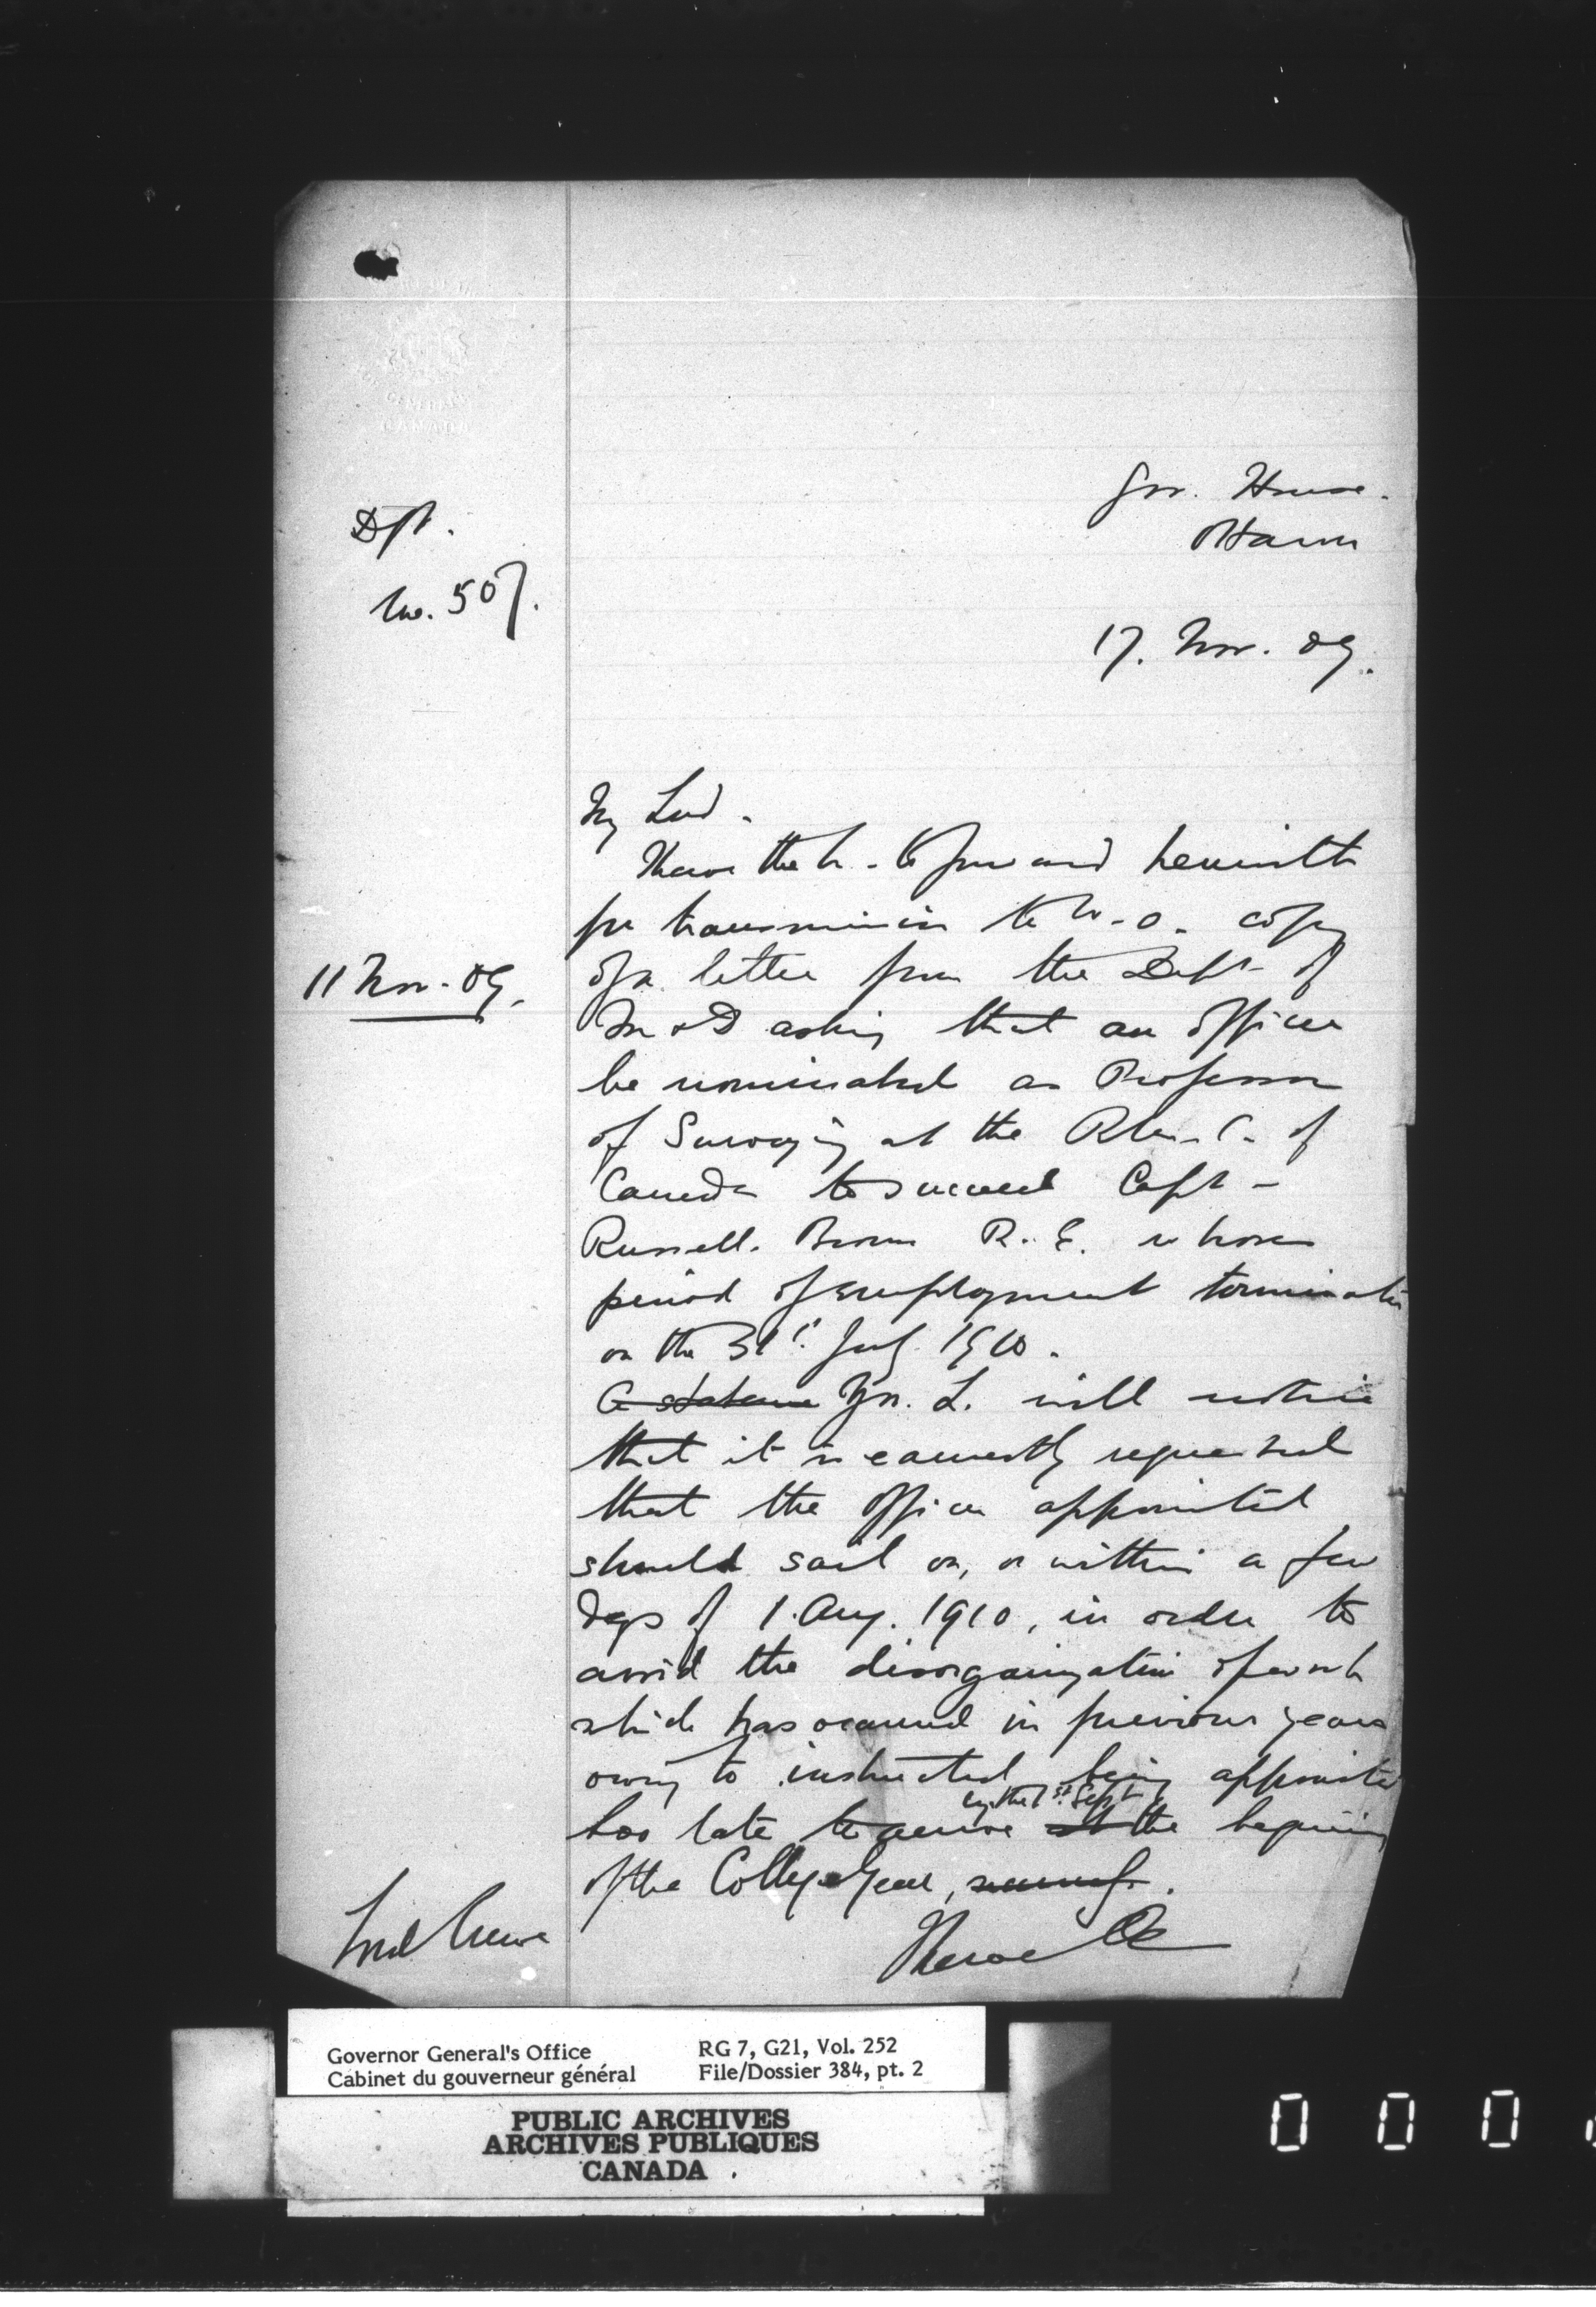 Gov. House.
Ottawa
Dft.
No. 507.
17. Nov. 09.
My Lord.
I have the h. to forward herewith
for transmission to W.O. copy
11 Nov. 09.
of a letter from the Dept of
M & D asking that an officer
be nominated as Professor
of Surveying at the R.M.C. of
Canada to succeed Capt-
Russell. Brown R.E. whose
period of employment terminates
on the 31st. July 1910.
Yr. L. will notice
that it is earnestly requested
that the officer appointed
should sail on, or within a few
days of 1. Aug. 1910, in order to
avoid the disorganization of work
which has occurred in previous years
owing to being appointed
by the 1st. Sept
too late to arrive at the beginning
of the College Year,
Lord Crewe
I have &c
CANADA
Governor General's Office
Cabinet du gouverneur général
RG 7, G21, Vol. 252
File/Dossier 384, pt. 2
PUBLIC ARCHIVES
ARCHIVES PUBLIQUES
CANADA
000